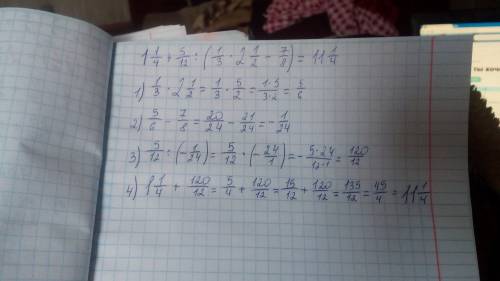 1 1/4 + 5/12 : (1/3 · 2 1/2 - 7/8) = 11 1/4
1) 1/3 · 2 1/2 = 1/3 · 5/2 = 1·5/3·2 = 5/6
2) 5/6 - 7/8 = 20/24 - 21/24 = - 1/24
3) 5/12 : (- 1/24) = 5/12 · (- 24/1) = - 5·24/12·1 = 120/12
4) 1 1/4 + 120/12 = 5/4 + 120/12 = 15/12 + 120/12 = 135/12 = 45/4 = 11 1/4